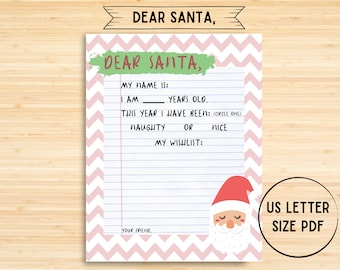 DEAR SANTA,
DEAR SANTA,
MY NAME IS:
I AM _____ YEARS OLD.
THIS YEAR I HAVE BEEN: (CIRCLE ONE)
NAUGHTY OR NICE
MY WISHLIST:
US LETTER
SIZE PDF
YOUR FRIEND,